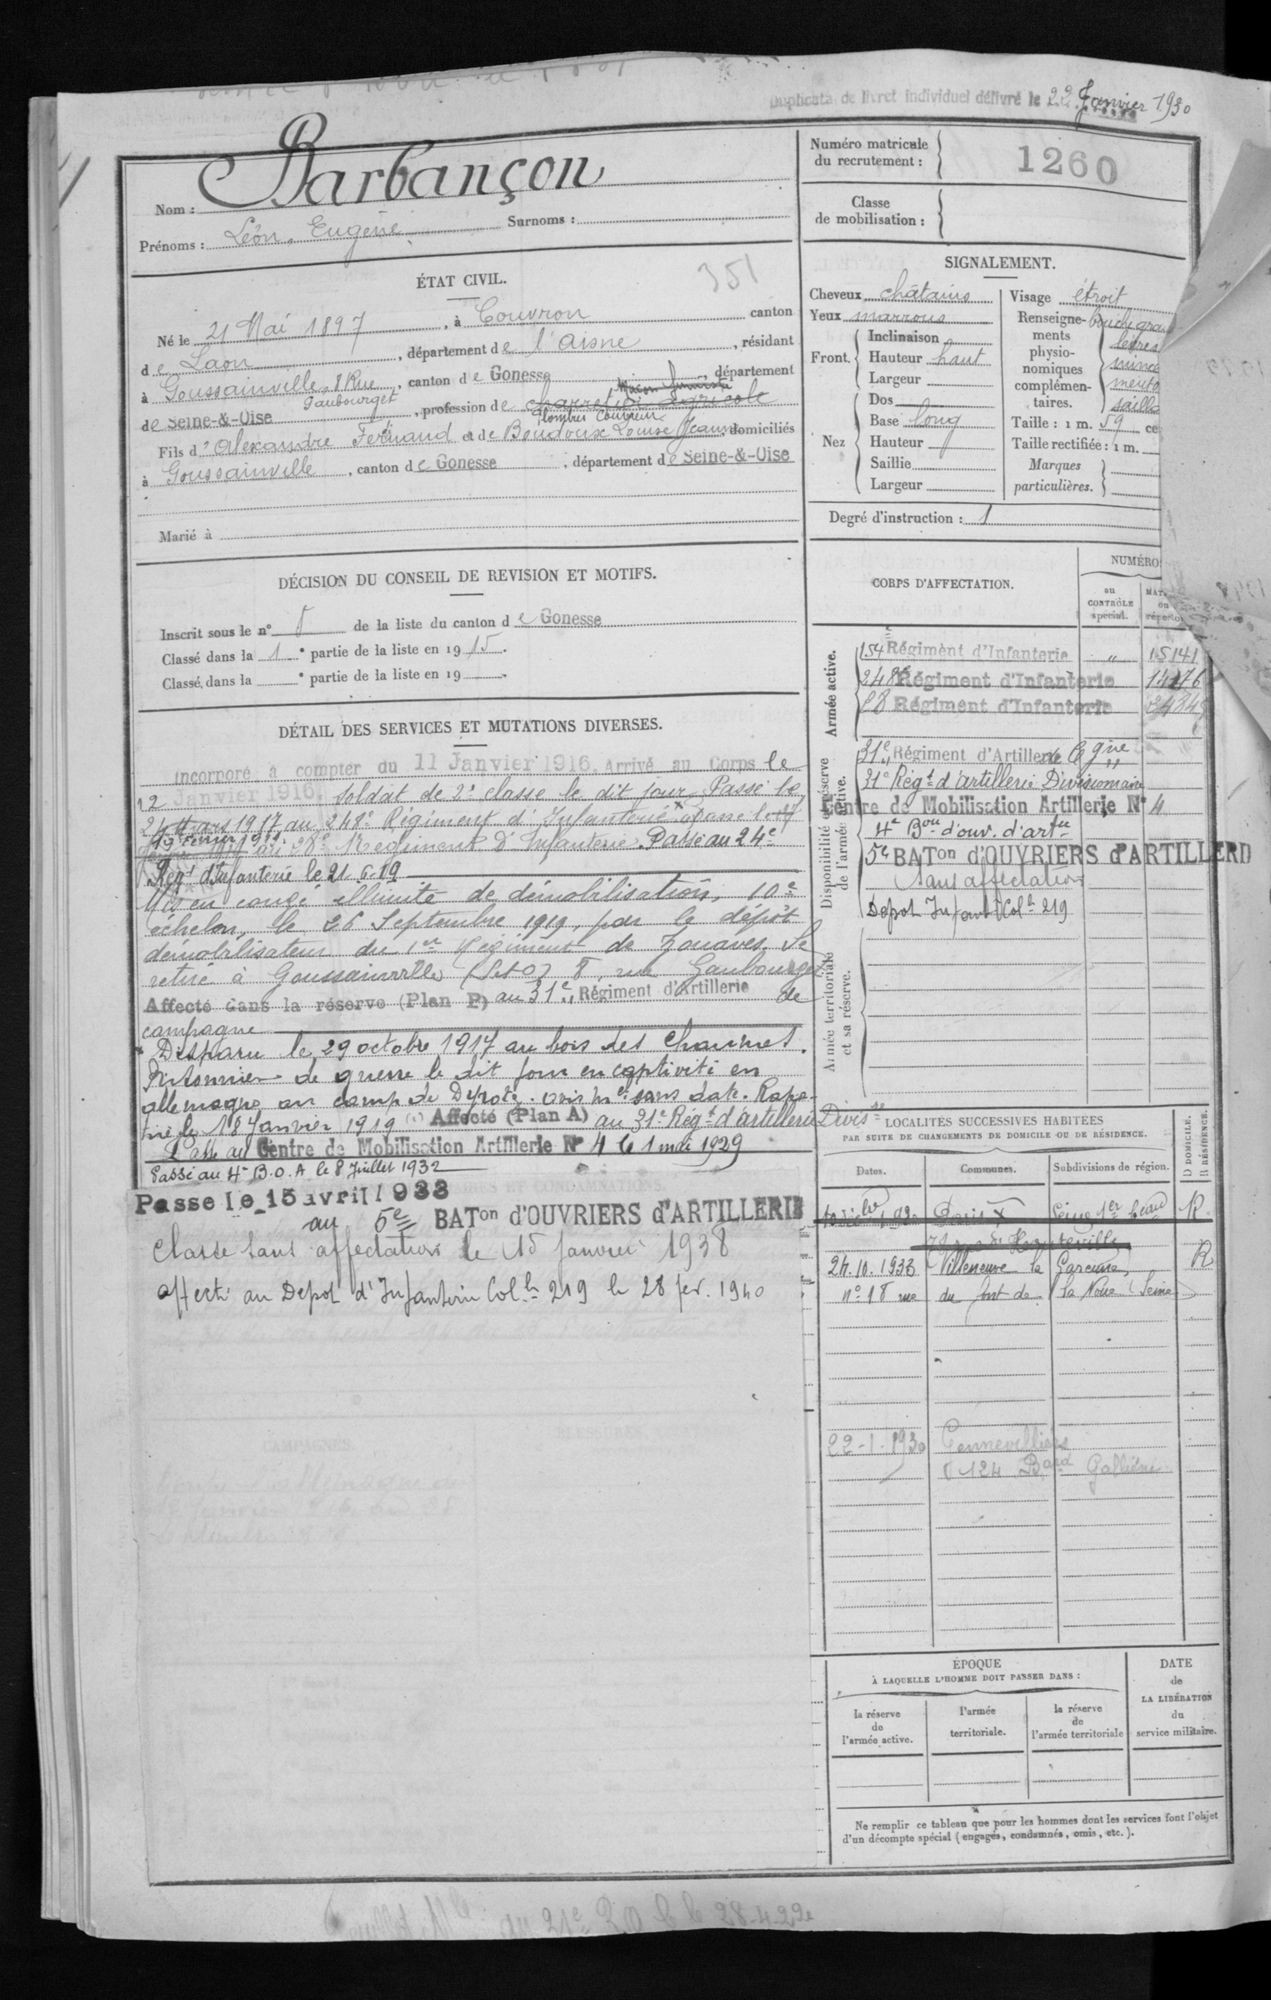 Duplicata de livret individuel délivré le 22 Janvier 1930
Nom : Barbançon
Prénoms : Léon Eugène Surnoms :
Numéro matricule du recrutement : 1260
Classe de mobilisation :
ÉTAT CIVIL.
351
Né le 21 Mai 1897, à Couvron canton
de Laon, département de l'Aisne, résidant
à Goussainville 8 Rue Gaubourget, canton de Gonesse, département
de Seine-&-Oise, profession de charretier agricole
Maçon fumiste
Plombier Couvreur
Fils d'Alexandre Fernand et de Boudoux Louise Jeanne, domiciliés
à Goussainville, canton de Gonesse, département de Seine-&-Oise
Marié à
SIGNALEMENT.
Cheveux châtains
Yeux marrons
Front. Inclinaison
Hauteur haut
Largeur
Nez Dos
Base long
Hauteur
Saillie
Largeur
Visage étroit
Renseignements physionomiques complémentaires. bouche gran
lèvres
mince
mento
sailla
Taille : 1 m. 59 ce
Taille rectifiée : 1 m.
Marques particulières.
Degré d'instruction : 1
DÉCISION DU CONSEIL DE REVISION ET MOTIFS.
Inscrit sous le n° 5 de la liste du canton de Gonesse
Classé dans la 1e partie de la liste en 1915.
Classé dans la e partie de la liste en 19 .
DÉTAIL DES SERVICES ET MUTATIONS DIVERSES.
Incorporé à compter du 11 Janvier 1916. Arrivé au Corps le
12 Janvier 1916, soldat de 2e classe le dit jour. Passé le
24 Mars 1917 au 248e Régiment d'Infanterie. Passé le
19 Février au 28e Régiment d'Infanterie. Passé au 24e
Régt d'Infanterie le 21.6.19
Mis en congé illimité de démobilisation, 10e
échelon, le 26 Septembre 1919, par le dépôt
démobilisateur du 1er Régiment de Zouaves. Se
retire à Goussainville (S et O) 8, rue Gaubourget
Affecté dans la réserve (Plan P) au 31e Régiment d'Artillerie de
campagne
Disparu le 29 octobre 1917 au bois des Chaumes.
Prisonnier de guerre le dit jour en captivité en
allemagne au camp de avis sans date. Rapa-
trié le 18 Janvier 1919 Affecté (Plan A) au 31e Régt d'artillerie Divisre
Passé au Centre de Mobilisation Artillerie N° 4 le 1 mai 1929
Passé au 4e B.O.A le 8 Juillet 1932
Passé le 15 avril 1933
au 5e BATon d'OUVRIERS d'ARTILLERIE
Classé sans affectation le 15 janvier 1938
affecté au Depot d'Infanterie Colle 219 le 28 fev. 1940
CORPS D'AFFECTATION.
NUMÉRO
au CONTRÔLE spécial.
Armée active.
154e Régiment d'Infanterie " 15141
248e Régiment d'Infanterie 14176
28 Régiment d'Infanterie
Disponibilité et réserve de l'armée active.
31e Régiment d'Artillerie de Cgne
31e Régt d'artillerie Divisionnaire
Centre de Mobilisation Artillerie N° 4
4e Bon d'ouv. d'artie
5e BATon d'OUVRIERS d'ARTILLERIE
Sans affectation
Depot Infanti Colle 219
Armée territoriale et sa réserve.
LOCALITÉS SUCCESSIVES HABITÉES
PAR SUITE DE CHANGEMENTS DE DOMICILE OU DE RÉSIDENCE.
Dates. Communes. Subdivisions de région. D DOMICILE. R RÉSIDENCE.
Paris X Seine 1er Bureau R
d'Hauteville
24.10.1933 Villeneuve la Garenne, R
n° 18 rue du fort de la Noue (Seine)
22-1-1930 Gennevilliers
124 Bard Galliéni
ÉPOQUE
À LAQUELLE L'HOMME DOIT PASSER DANS :
la réserve de l'armée active.
l'armée territoriale.
la réserve de l'armée territoriale
DATE de LA LIBÉRATION du service militaire.
Ne remplir ce tableau que pour les hommes dont les services font l'objet
d'un décompte spécial (engagés, condamnés, omis, etc.).